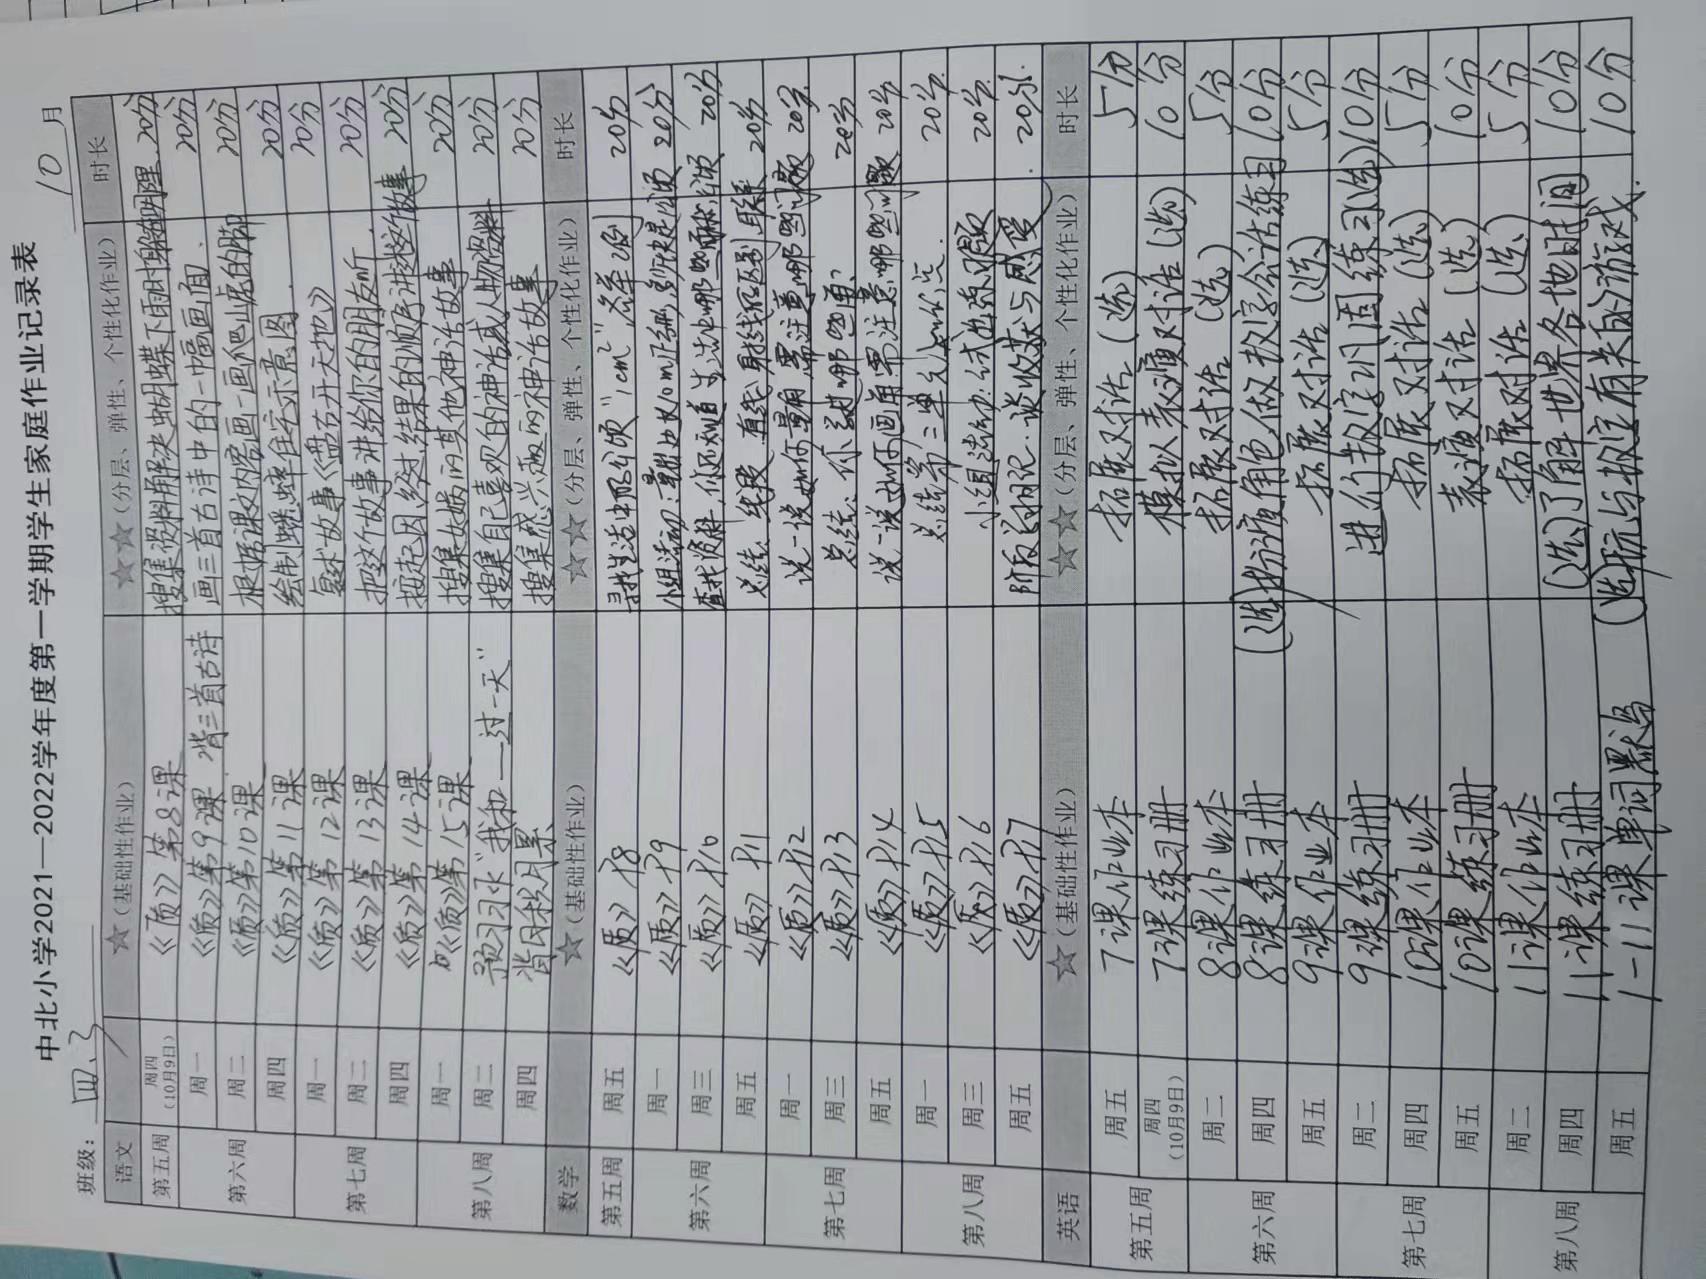 中北小学2021—2022学年度第一学期学生家庭作业记录表
班级：四、3 10月
语文 ☆（基础性作业） ☆☆（分层、弹性、个性化作业） 时长
第五周 周四（10月9日） 《质》第8课 搜集资料解决蝴蝶下雨时躲哪里 20分
第六周 周一 《质》第9课 背三首古诗 画三首古诗中的一幅画面 20分
周二 《质》第10课 根据课文内容画一画爬山虎的脚 20分
周四 《质》第11课 绘制蟋蟀住宅示意图 20分
第七周 周一 《质》第12课 复述故事《盘古开天地》 20分
周二 《质》第13课 把这个故事讲给你的朋友听 20分
周四 《质》第14课 按起因、经过、结果的顺序讲述故事 20分
第八周 周一 《质》第15课 搜集女娲的其他神话故事 20分
周二 预习习作“我和__过一天” 搜集自己喜欢的神话或人物资料 20分
周四 背日积月累 搜集感兴趣的神话故事 20分
数学 ☆（基础性作业） ☆☆（分层、弹性、个性化作业） 时长
第五周 周五 《质》P8 寻找生活中的“公顷”, 20分
第六周 周一 《质》P9 小组活动： 20分
周三 《质》P10 查找资料，你还知道生活中哪些面积 公顷 20分
周五 《质》P11 总结：线段、直线、射线的区别 联系 20分
第七周 周一 《质》P12 说一说如何量角 需注意哪些问题 20分
周三 《质》P13 总结：你学过哪些角？ 20分
周五 《质》P14 说一说如何画角需注意哪些问题 20分
第八周 周一 《质》P15 总结第三单元知识点. 20分
周三 《质》P16 小组活动：试出易错题 20分
周五 《质》P17 阶段时记：谈收获与感受 20分.
英语 ☆（基础性作业） ☆☆（分层、弹性、个性化作业） 时长
第五周 周五 7课作业本 拓展对话（选） 5分
周四（10月9日） 7课练习册 模拟表演对话（选） 10分
第六周 周二 8课作业本 拓展对话（选） 5分
周四 8课练习册 （选）扮演角色做数字会话练习 10分
周五 9课作业本 拓展对话（选） 5分
第七周 周二 9课练习册 进行数字巩固练习（选） 10分
周四 10课作业本 拓展对话（选） 5分
周五 10课练习册 表演对话（选） 10分
第八周 周二 11课作业本 拓展对话（选） 5分
周四 11课练习册 （选）了解世界各地时间 10分
周五 1-11课单词默写 （选）玩与数字有关的游戏. 10分